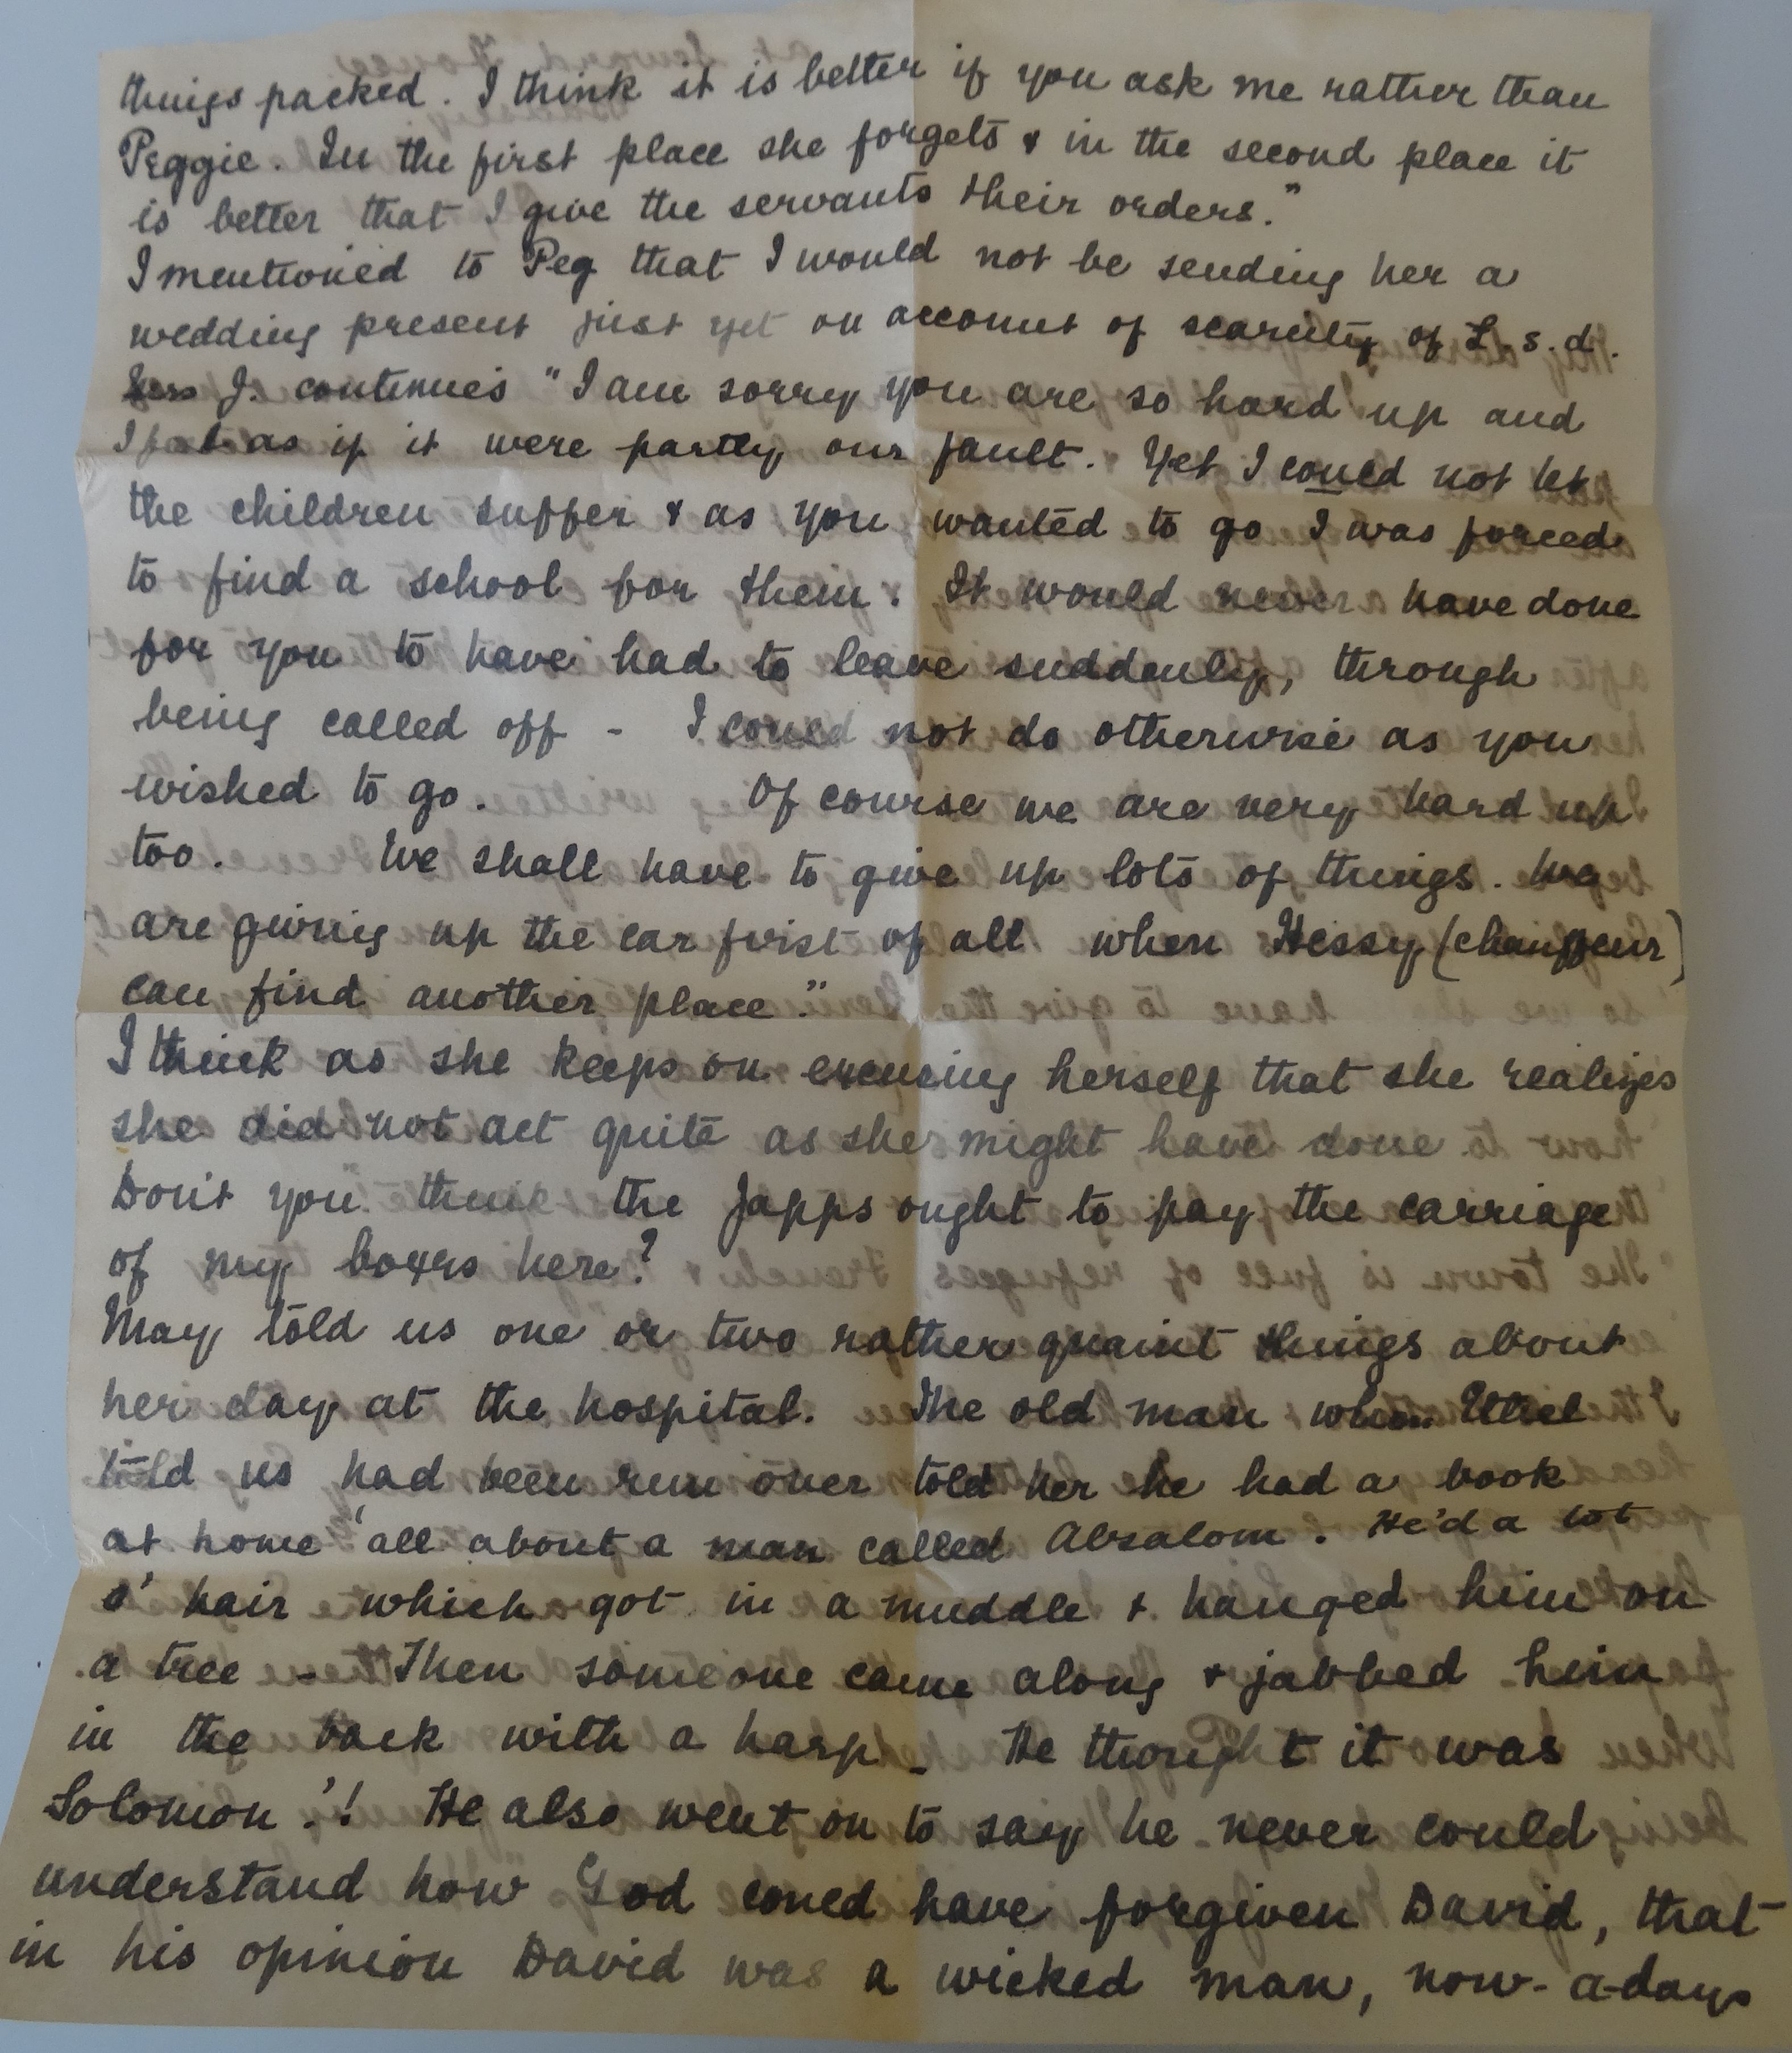 things packed. I think it is better if you ask me rather than
Peggie. In the first place she forgets & in the second place it
is better that I give the servants their orders."
I mentioned to Peg that I would not be sending her a
wedding present just yet on account of scarcity of £.s.d.
J. continues "I am sorry you are so hard up and
I feel as if it were partly our fault. Yet I could not let
the children suffer & as you wanted to go I was forced
to find a school for them. It would never have done
for you to have had to leave suddenly, through
being called off - I could not do otherwise as you
wished to go. Of course we are very hard up
too. We shall have to give up lots of things. We
are giving up the car first of all when Hessy (chauffeur)
can find another place."
I think as she keeps on excusing herself that she realizes
she did not act quite as she might have done
Don't you think the Japps ought to pay the carriage
of my boxes here?
May told us one or two rather quaint things about
her day at the hospital. The old man whom Ethel
told us had been run over told her he had a book
at home 'all about a man called Absalom. He'd a lot
o' hair which got in a muddle & hanged him on
a tree - Then someone came along & jabbed him
in the back with a harp - He thought it was
Solomon.'! He also went on to say he never could
understand how God could have forgiven David, that
in his opinion David was a wicked man, now-a-days